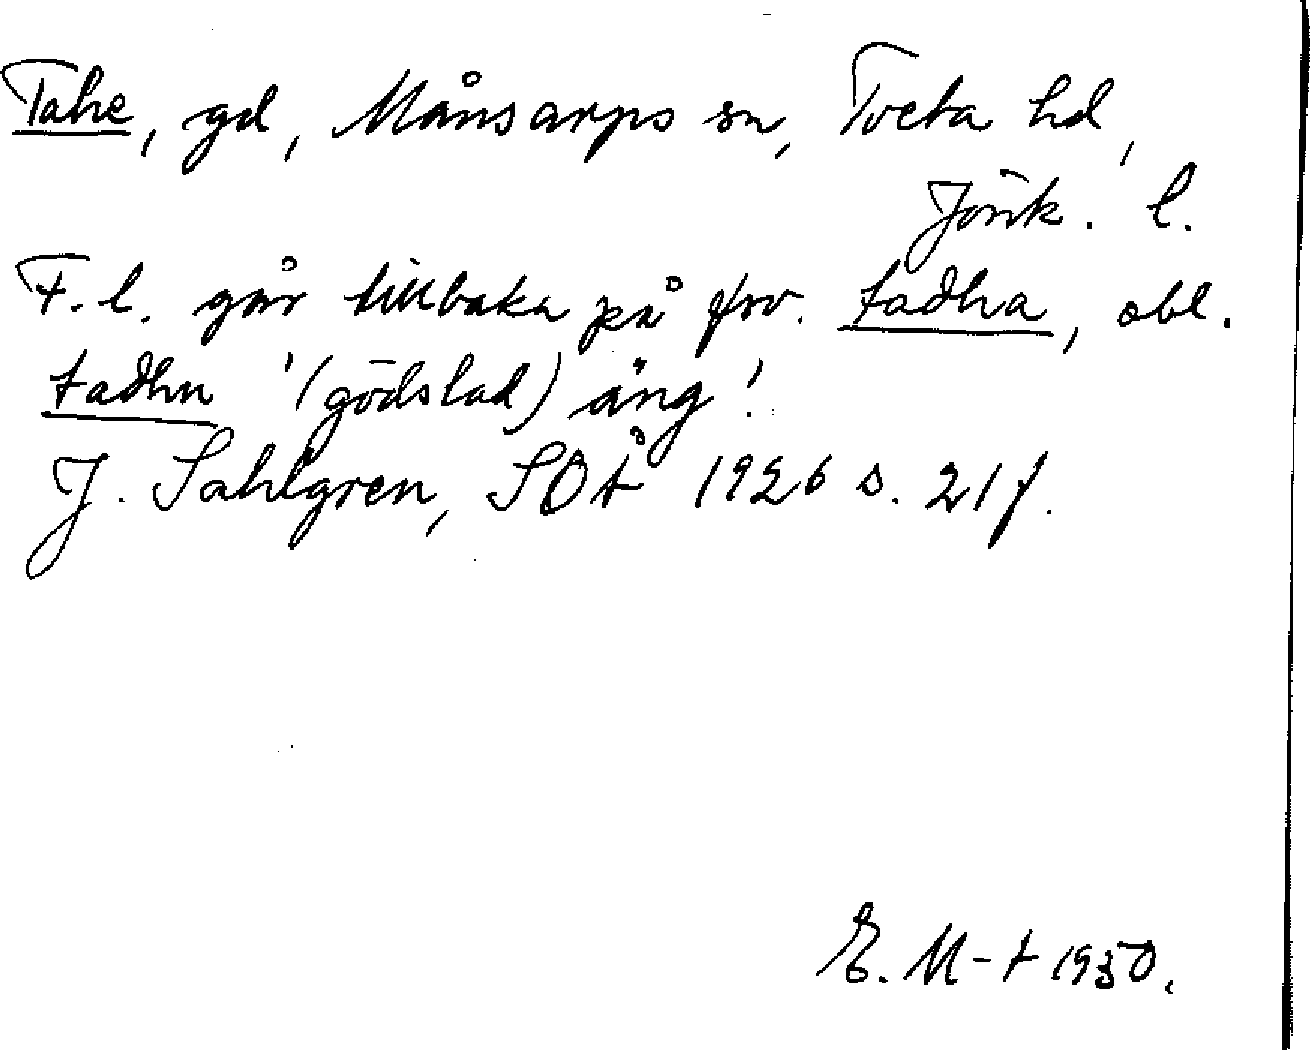 Tahe, gd, Månsarps sn, Tveta hd,
Jönk. l.
F. l. går tillbaka på fsv. tadha, obl.
tadhu '(gödslad) äng'.
J. Sahlgren, SOÅ 1926 s. 21 f.
E. M-t 1950.